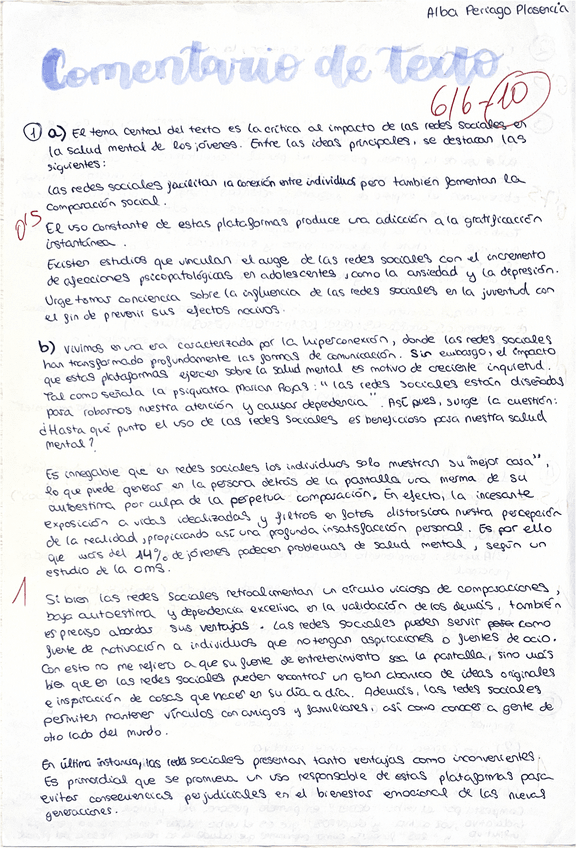 Alba Perrago Plasencia
Comentario de texto
6/6 - 10
1 a) El tema central del texto es la crítica al impacto de las redes sociales en
la salud mental de los jóvenes. Entre las ideas principales, se destacan las
siguientes:
Las redes sociales facilitan la conexión entre individuos pero también fomentan la
comparación social.
0'5
El uso constante de estas plataformas produce una adicción a la gratificación
instantánea.
Existen estudios que vinculan el auge de las redes sociales con el incremento
de afecciones psicopatológicas en adolescentes, como la ansiedad y la depresión.
Urge tomar conciencia sobre la influencia de las redes sociales en la juventud con
el fin de prevenir sus efectos nocivos.
b) Vivimos en una era caracterizada por la hiperconexión, donde las redes sociales
han transformado profundamente las formas de comunicación. Sin embargo, el impacto
que estas plataformas ejercen sobre la salud mental es motivo de creciente inquietud.
Tal como señala la psiquiatra Marian Rojas: "las redes sociales están diseñadas
para robarnos nuestra atención y causar dependencia". Así pues, surge la cuestión:
¿Hasta qué punto el uso de las redes sociales es beneficioso para nuestra salud
mental?
Es innegable que en redes sociales los individuos solo muestran su "mejor cara",
lo que puede generar en la persona detrás de la pantalla una merma de su
autoestima por culpa de la perpetua comparación. En efecto, la incesante
exposición a vidas idealizadas y filtros en fotos distorsiona nuestra percepción
de la realidad, propiciando así una profunda insatisfacción personal. Es por ello
que más del 14% de jóvenes padecen problemas de salud mental, según un
estudio de la OMS.
1
Si bien las redes sociales retroalimentan un círculo vicioso de comparaciones,
baja autoestima y dependencia excesiva en la validación de los demás, también
es preciso abordar sus ventajas. Las redes sociales pueden servir como
fuente de motivación a individuos que no tengan aspiraciones o fuentes de ocio.
Con esto no me refiero a que su fuente de entretenimiento sea la pantalla, sino más
bien que en las redes sociales pueden encontrar un gran abanico de ideas originales
e inspiración de cosas que hacer en su día a día. Además, las redes sociales
permiten mantener vínculos con amigos y familiares, así como conocer a gente de
otro lado del mundo.
En última instancia, las redes sociales presentan tanto ventajas como inconvenientes.
Es primordial que se promueva un uso responsable de estas plataformas para
evitar consecuencias perjudiciales en el bienestar emocional de las nuevas
generaciones.